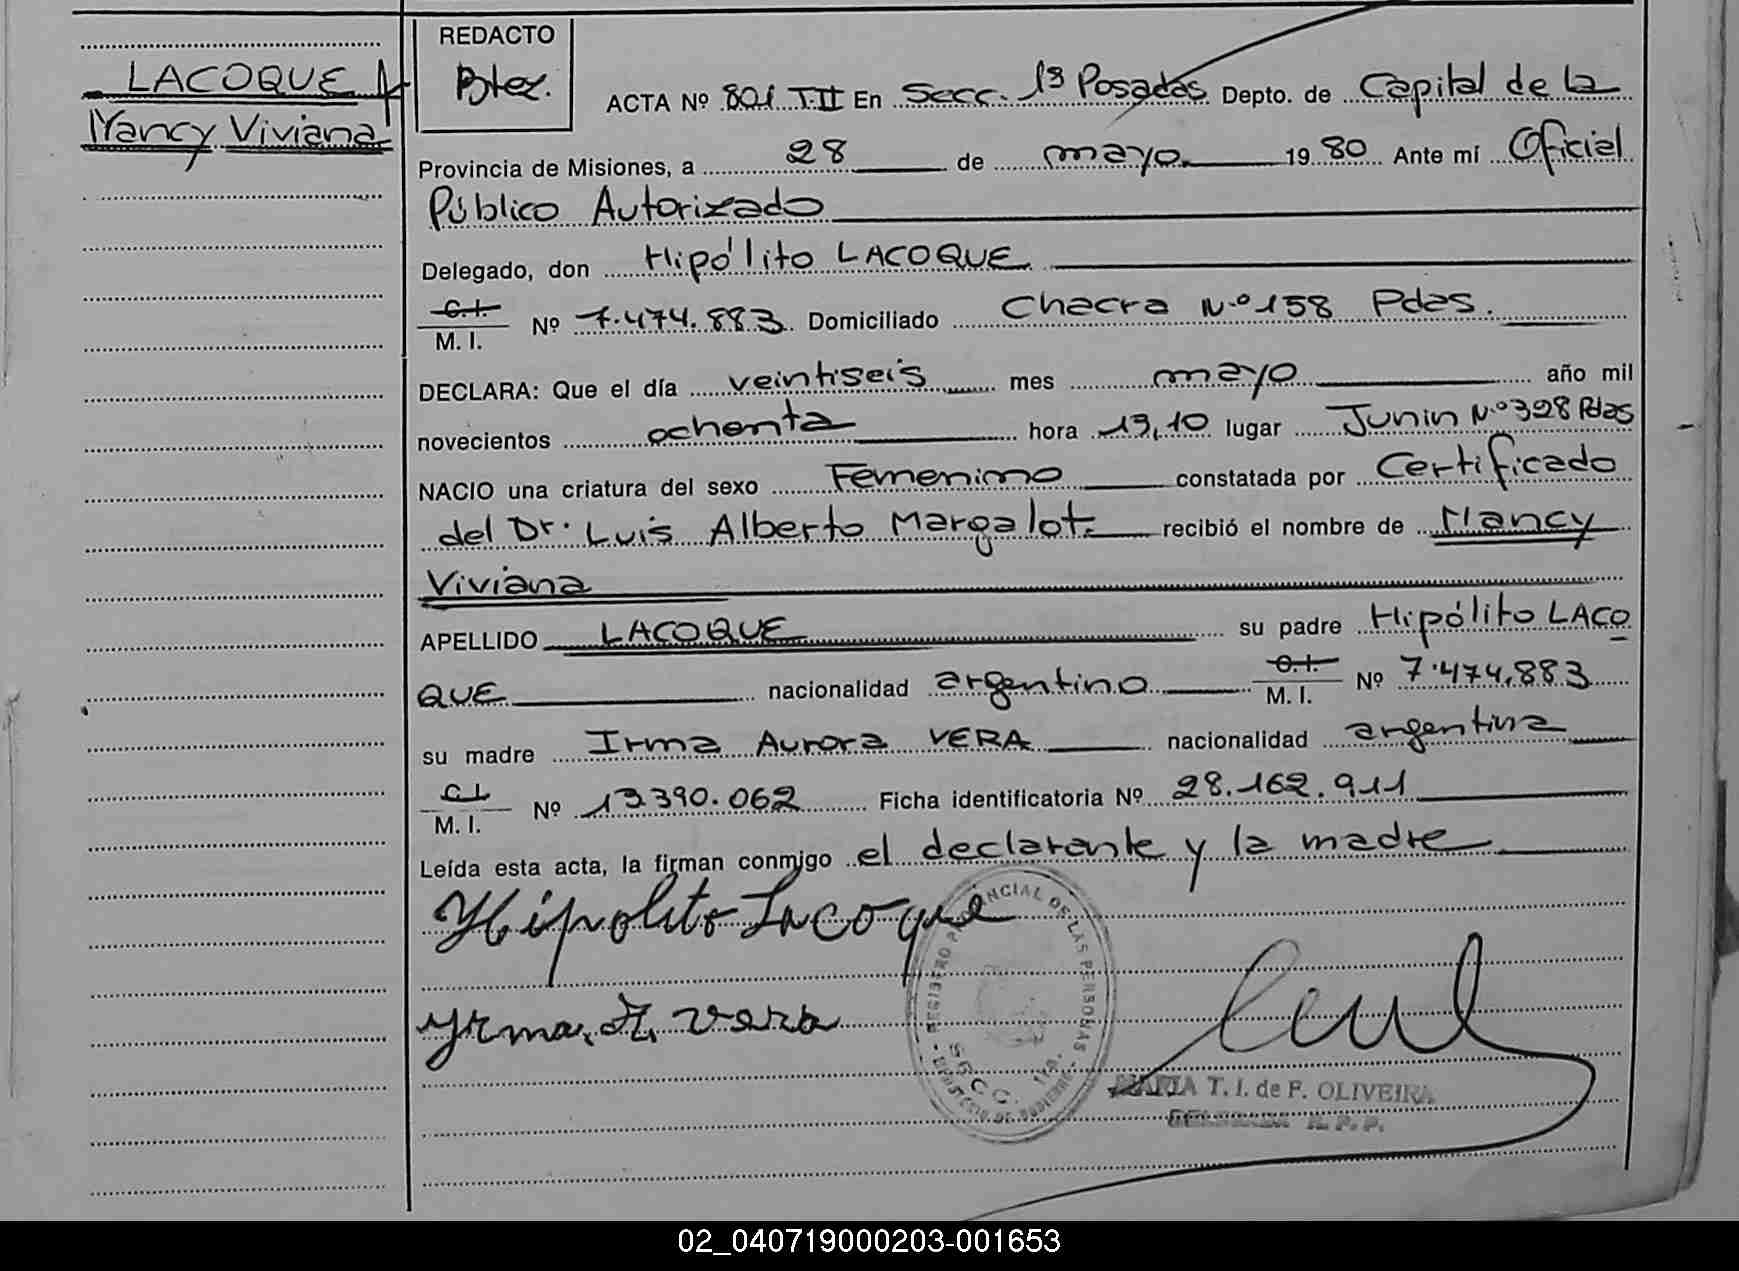 LACOQUE
Nancy Viviana
REDACTO
ACTA Nº 801 T.II En Secc. 1ª Posadas Depto. de Capital de la
Provincia de Misiones, a 28 de mayo 1980 Ante mí Oficial
Público Autorizado
Delegado, don Hipólito LACOQUE
C.I.
M. I. Nº 7.474.883 Domiciliado Chacra N.º 158 Pdas.
DECLARA: Que el día veintiseis mes mayo año mil
novecientos ochenta hora 13,10 lugar Junin N.º 398 Pdas
NACIO una criatura del sexo Femenino constatada por Certificado
del Dr. Luis Alberto Margalot. recibió el nombre de Nancy
Viviana
APELLIDO LACOQUE su padre Hipólito LACO
QUE nacionalidad argentino C.I. M. I. Nº 7.474.883
su madre Irma Aurora VERA nacionalidad argentina
C.I.
M. I. Nº 13.390.062 Ficha identificatoria Nº 28.162.911
Leída esta acta, la firman conmigo el declarante y la madre
Hipolito Lacoque
REGISTRO PROVINCIAL DE LAS PERSONAS
Yrma, A, Vera
SECC. 1ra.
MINISTERIO DE GOBIERNO
MARIA T. I. de F. OLIVEIRA
DELEGADA R. P. P.
02_040719000203-001653